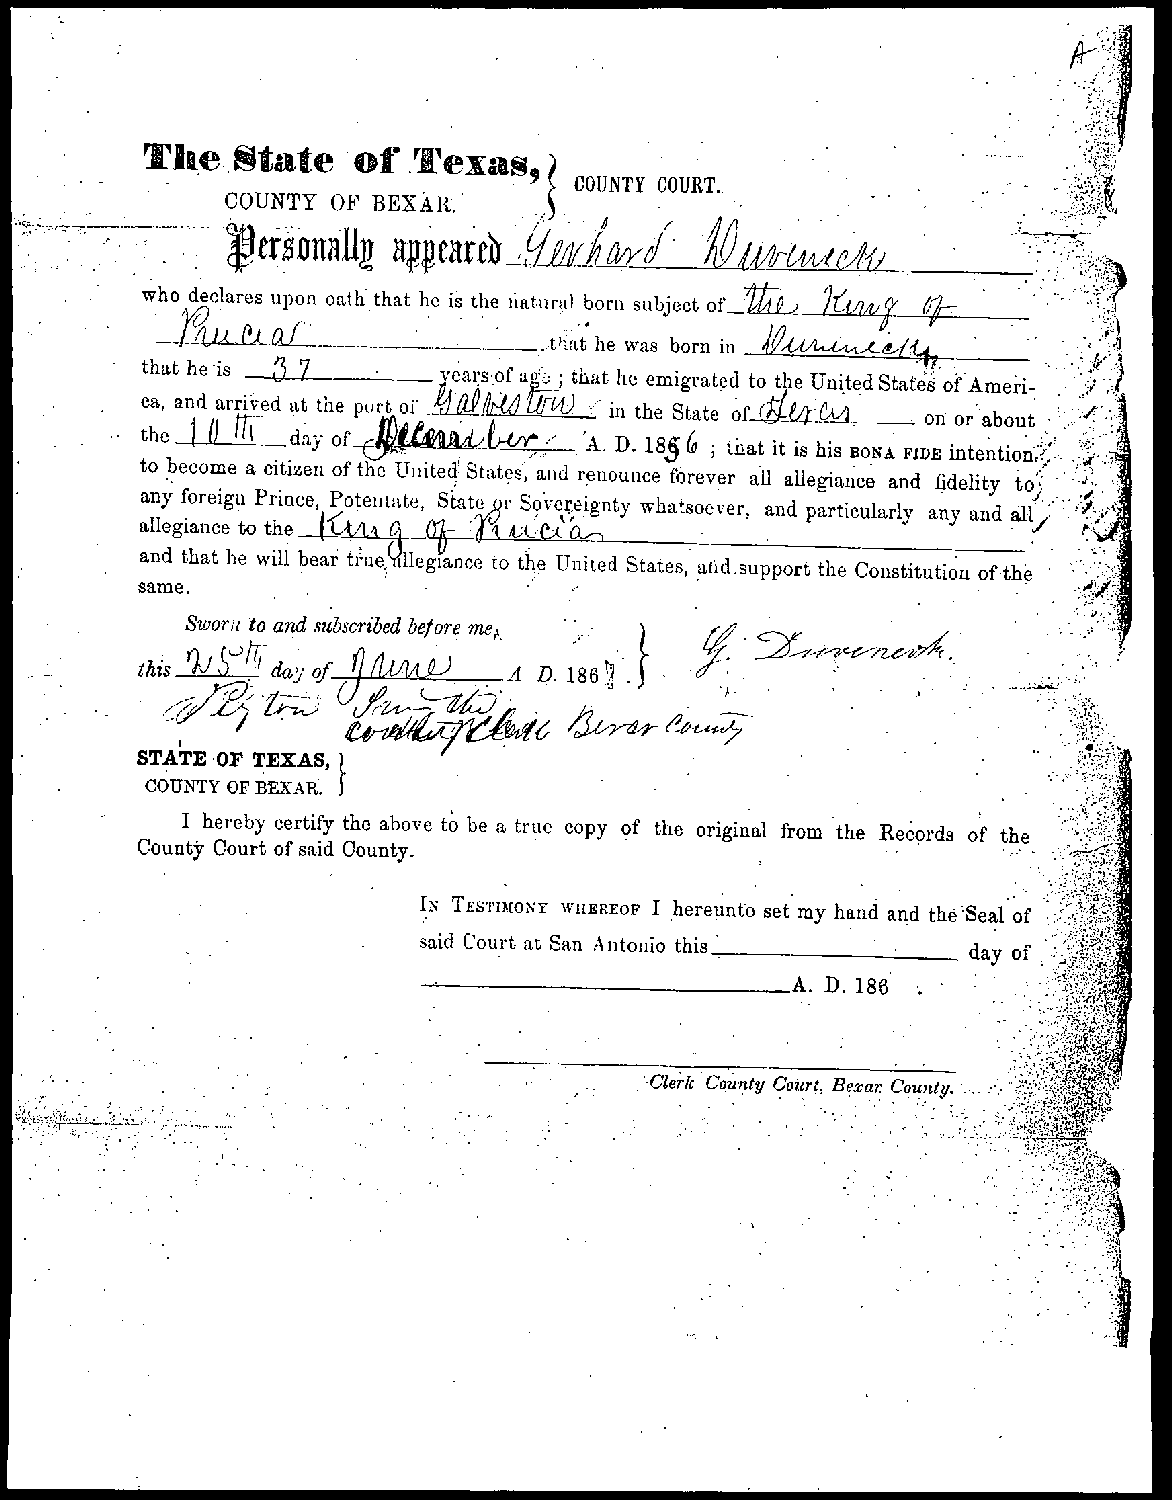 A
The State of Texas, } COUNTY COURT.
COUNTY OF BEXAR.
Personally appeared Gerhard Duveneck
who declares upon oath that he is the natural born subject of the King of
Prucia that he was born in
that he is 37 years of age; that he emigrated to the United States of Ameri-
ca, and arrived at the port of Galveston in the State of Texas on or about
the 10th day of December A. D. 1856; that it is his BONA FIDE intention,
to become a citizen of the United States, and renounce forever all allegiance and fidelity to
any foreign Prince, Potentate, State or Sovereignty whatsoever, and particularly any and all
allegiance to the King of Prucia
and that he will bear true allegiance to the United States, and support the Constitution of the
same.
Sworn to and subscribed before me,
this 25th day of June A D. 1867. } G. Duveneck.
Peyton Smythe
Clerk Bexar County
STATE OF TEXAS, }
COUNTY OF BEXAR.
I hereby certify the above to be a true copy of the original from the Records of the
County Court of said County.
IN TESTIMONY WHEREOF I hereunto set my hand and the Seal of
said Court at San Antonio this day of
A. D. 186 .
Clerk County Court, Bexar County.